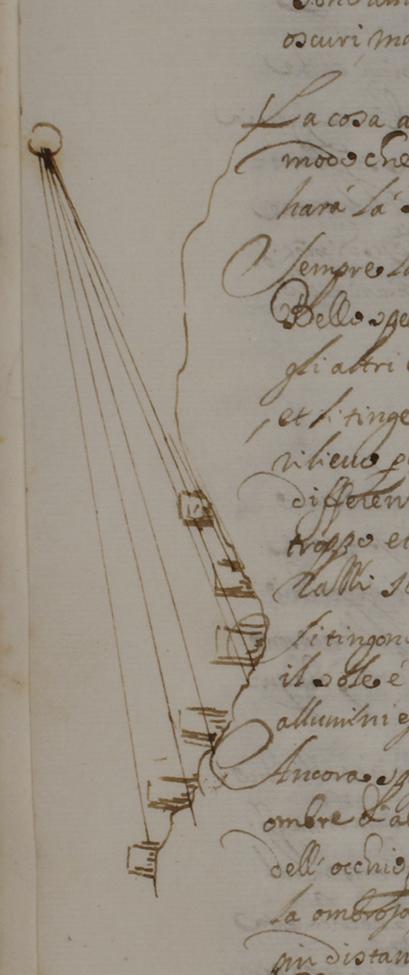 oscuri, ma
La cosa a
modo che
harà la
sempre la
Bello spe
gli altri
et si tinge
rilievo p
differen
troppo e
si tingon
il sole è
allumini e
Ancora sp
ombre d'a
dell'occhio
la ombrosa
in distan